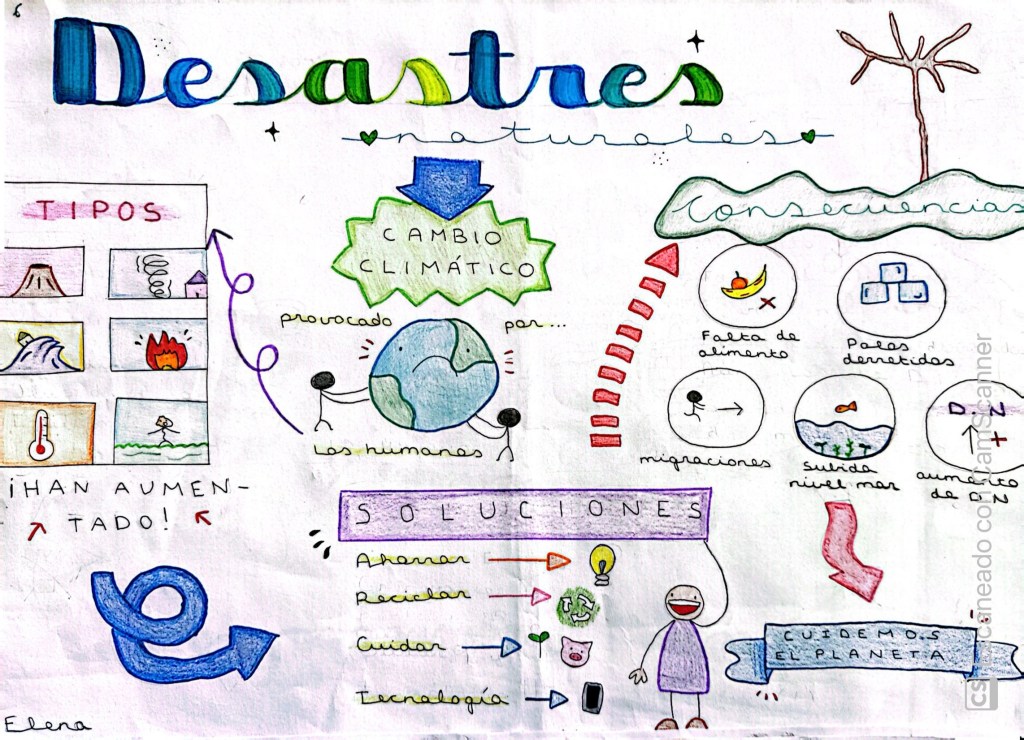 6
Desastres
naturales
TIPOS
¡HAN AUMEN-
TADO!
CAMBIO
CLIMÁTICO
provocado por...
los humanos
Consecuencias
Falta de
alimento
Polos
derretidos
migraciones
Subida
nivel mar
D.N
+
aumento
de D.N
SOLUCIONES
Ahorrar
Reciclar
Cuidar
Tecnología
CUIDEMOS
EL PLANETA
Elena
CS Escaneado con CamScanner